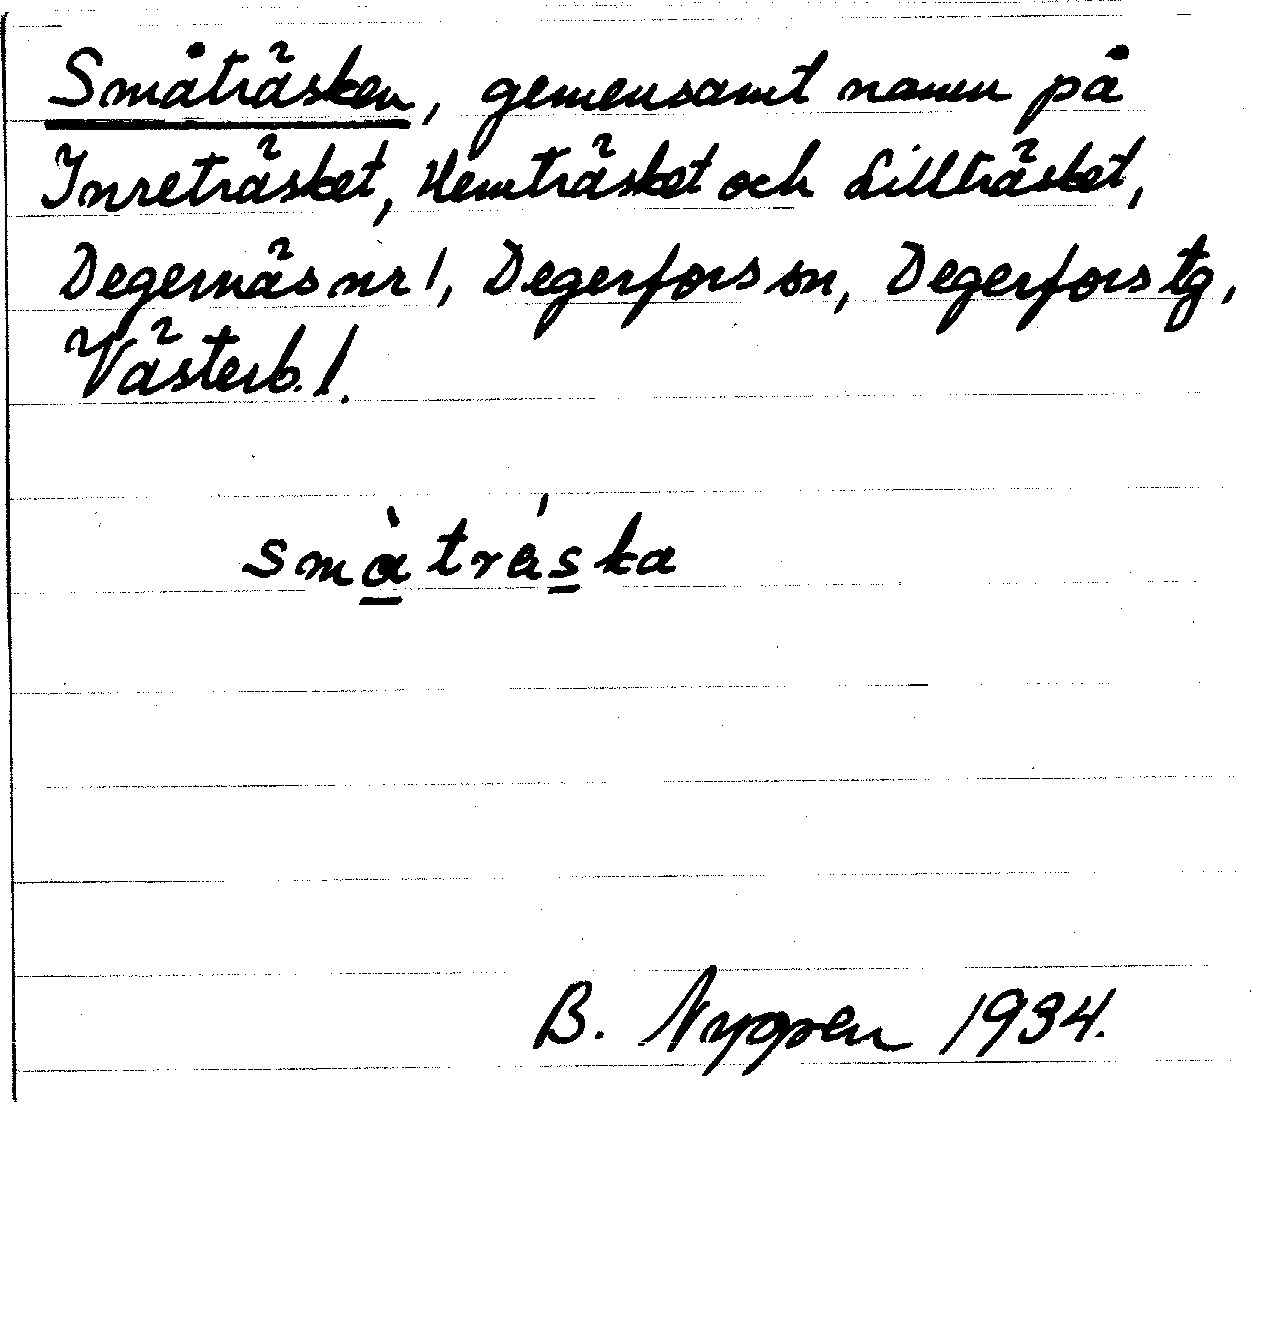 Småträsken, gemensamt namn på
Inreträsket, Hemträsket och Lillträsket,
Degernäs nr 1, Degerfors sn, Degerfors tg,
Västerb. l.
småträska
B. Nygren 1934.